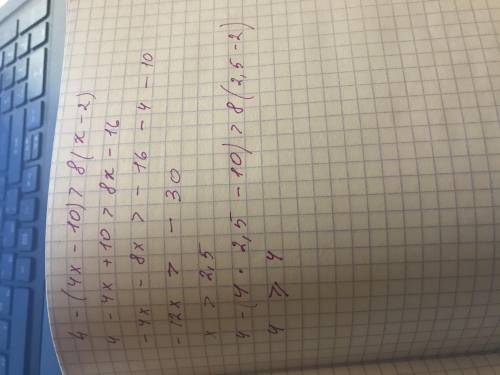 4 - (4x - 10) > 8(x - 2)
4 - 4x + 10 > 8x - 16
-4x - 8x > - 16 - 4 - 10
-12x > - 30
x > 2,5
4 - (4 · 2,5 - 10) > 8(2,5 - 2)
4 ⩾ 4